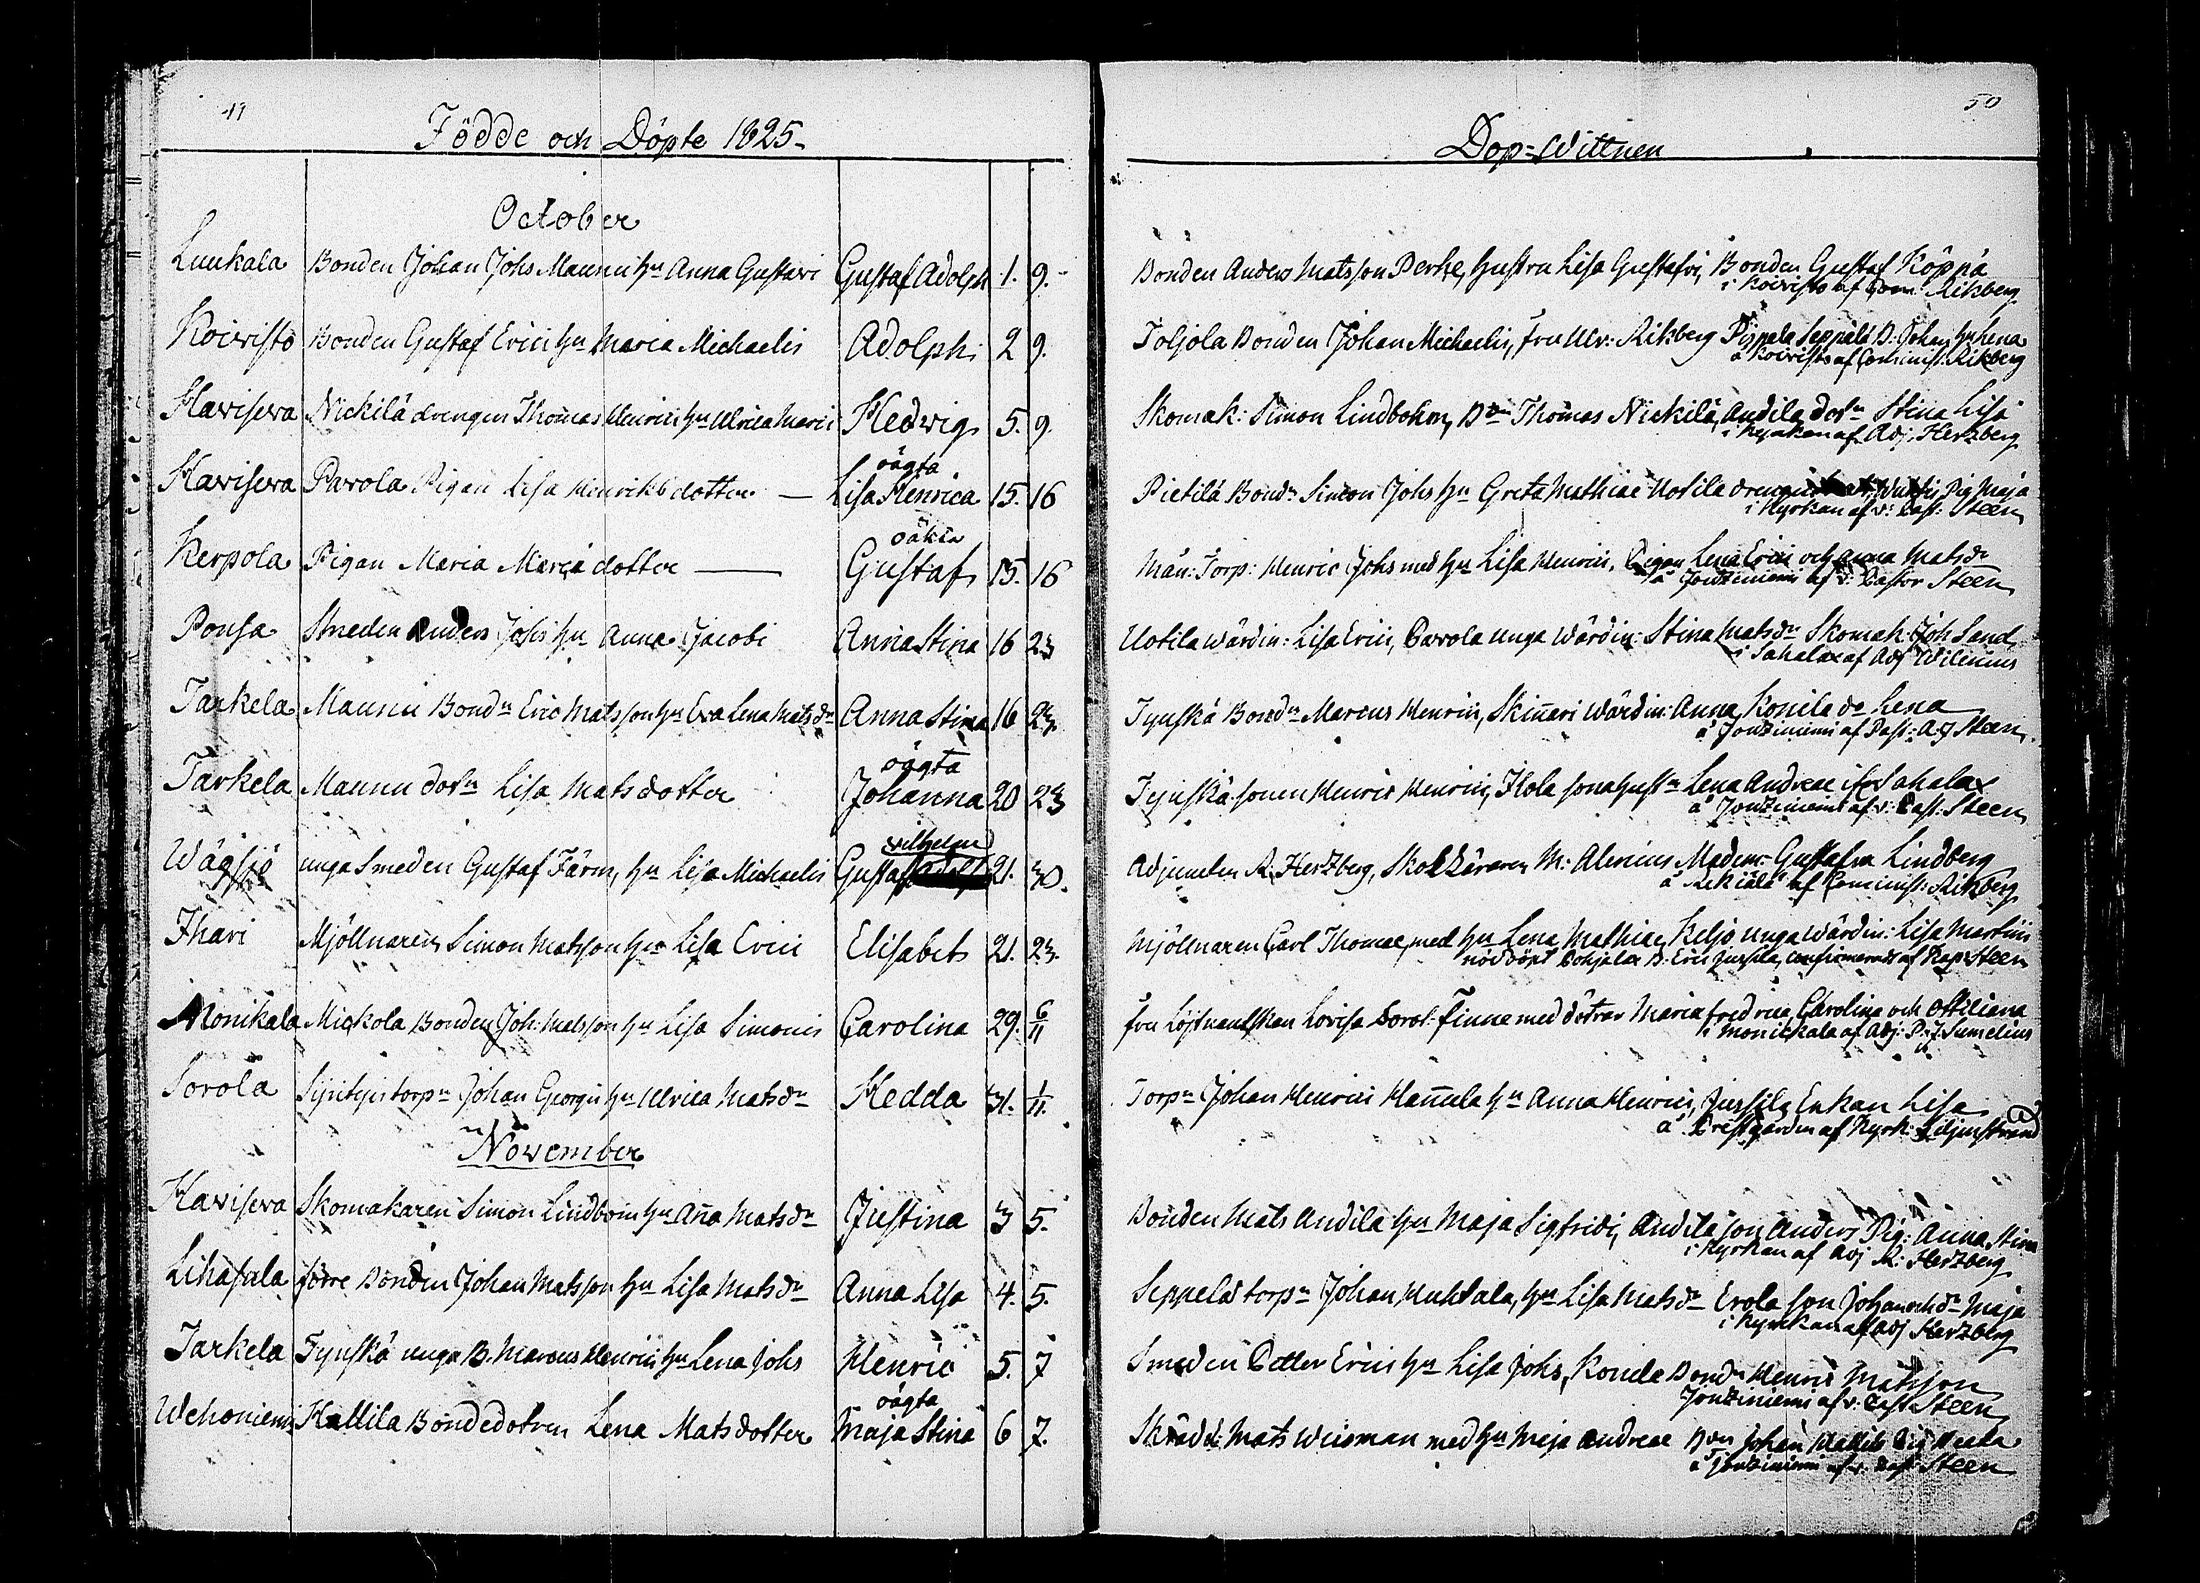 Födde och Döpte 1825.
October
Luukala Bonden Johan Johs Maunu hu Anna Gustavi Gustaf Adolph 1. 9.
Koivisto Bonden Gustaf Erici hu Maria Michaelis Adolph 2 9.
Havisева Nickilä drengen Thomas Henrici hu Ulrica Marci Hedwig 5. 9.
oägta
Haviseva Parola Pigan Lisa Henriksdotter — Lisa Henrica 15. 16
oäkta
Kerpola Pigan Maria Maria dotter — Gustaf 15. 16
Ponsa Smeden Anders Johs hu Anna Jacobi Anna Stina 16 23
Tarkela Maunu Bondn Eric Matsson hu Eva Lena Matsdr Anna Stina 16 23.
oägta
Tarkela Maunu dotn Lisa Matsdotter Johanna 20 23
vilhelm
Wägsjö unga Smeden Gustaf Färm, hu Lisa Michaelis Gustaf 21. 30.
Ihari Mjöllnaren Simon Matsson hu Lisa Erici Elisabet 21. 23.
Monikala Mickola Bonden Joh: Matsson hu Lisa Simonis Carolina 29. 6/11
Sorola torpn Johan Georgii hu Ulrica Matsdr Hedda 31. 1/11.
November
Haviseva Skomakaren Simon Lindbom hu Aña Matsdr Justina 3 5.
Lihasula förre Bonden Johan Matsson hu Lisa Matsdr Anna Lisa 4. 5.
Tarkela Tynskä unga B. Marcus Henrici hu Lena Johs Henric 5. 7
oägta
Wehoniemi Hallila Bondedotren Lena Matsdotter Maja Stina 6 7.
50
Dop=Wittnen
Bonden Anders Matsson Perhe, hustru Lisa Gustafvi, Bonden Gustaf Köppä
i Koivisto af Com: Rikberg
Toljola Bonden Johan Michaelis, fru Ulr: Rikberg Pippola Seppälä B. Johan hu Lena
å Koivisto af Comminist: Rikberg
Skomak: Simon Lindbohm, Thomas Nickilä, Andila dotn Stina Lisa
i Kyrkan af Adj. Herzberg
Pietilä Bondn Simon Johs hu Greta Mathiae Uotila drengen Pig Maja
i Kyrkan af v: Past: Steen
Män: Torp: Henric Johs med hu Lisa Henrici, Pigan Lena Erici och Anna Matsdr
å Joutziniemi af v: Pastor Steen
Uotila wärdin: Lisa Erici, Parola unga wärdin: Stina Matsdr Skomak: Joh Sand
i Sahalax af Adj Wilenius
Tynskä Bondn Marcus Henrici, Skiñari wärdin: Anna, Konila dr Lena
å Joutziniemi af Past: Adj Steen
Tynskä sonen Henric Henrici, Ilola sonahustn Lena Andreae ifr Sahalax
å Joutziniemi af v: Past: Steen
Adjuncten A. Herzberg, Skolläraren M: Alenius, Madem: Gustafva Lindberg
å Rekiälä af Comminist: Rikberg
Mjöllnaren Carl Thomae, med hu Lena Mathiae, Keljo unga wärdin: Lisa Martini
nöddöpt Pohjalax B. Eric Jussila, confirmerat af Steen
fru Löjtnantskan Lovisa Dorot: Finne med dötrar Maria fredrica, Carolina och Ottiliana
i Monickala af Adj: P: J. Sumelius
Torpn Johan Henrici Hañula hu Anna Henrici, Jussila Enkan Lisa
å Prestgården af Kyrk: Liljenstrand
Bonden Mats Andila hu Maja Sigfridi, Andila son Anders Pig: Anna Stina
i Kyrkan af Adj A: Herzberg
Seppelä torpn Johan Huhtala, hu Lisa Matsdr Erola son Johan och dr Maja
i Kyrckan af Adj Herzberg
Smeden Petter Erici hu Lisa Johs, Konila Bondn Henric Matsson
Joutziniemi af v: Past Steen
Skrädd: Mats Weisman med hu Maja Andreae Johan Hallila Pig
å Joutziniemi af v: Past Steen